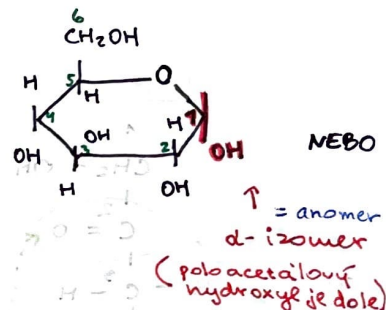 6
CH₂OH
H 5 O
H
4 H 1
OH OH 3 2 OH
H OH
NEBO
= anomer
α-izomer
(poloacetálový
hydroxyl je dole)